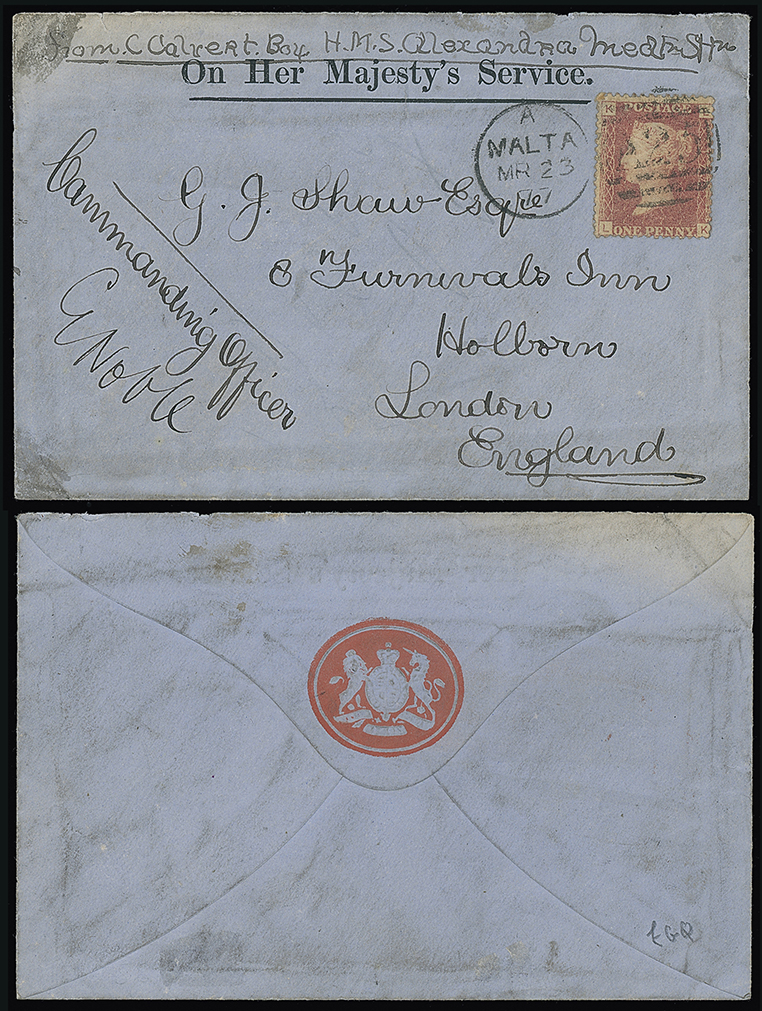 from C Calvert. Boy H.M.S. Alexandra Medtn Stn
On Her Majesty's Service.
A
MALTA
MR 23
77
K L
POSTAGE
L K
ONE PENNY
G. J. Shaw Esqre
8 Furnivals Inn
Holborn
London
England
Commanding Officer
G Noble